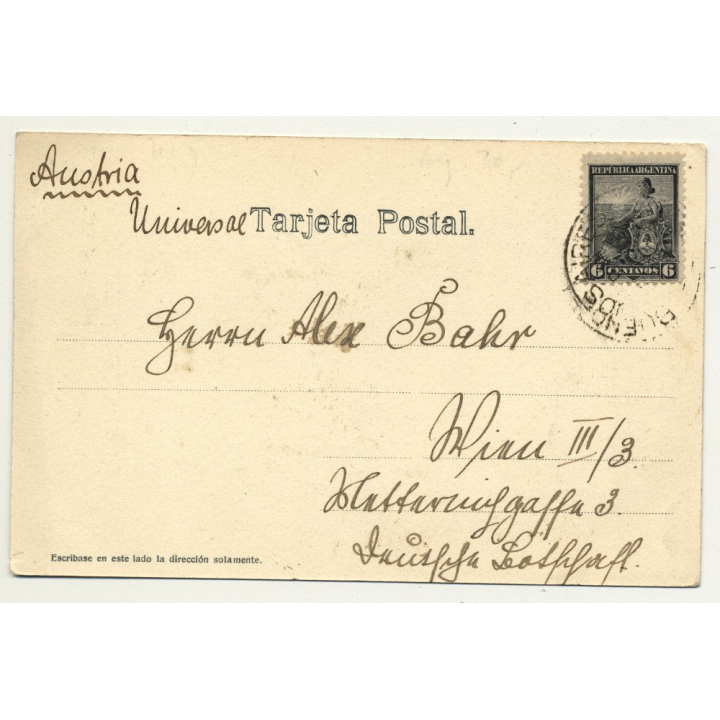 Austria
Universal Tarjeta Postal.
REPÚBLICA ARGENTINA
6 CENTAVOS 6
BUENOS AIRES
Herrn Alex Bahr
Wien III/3.
Metternichgasse 3.
Deutsche Botschaft.
Escribase en este lado la dirección solamente.